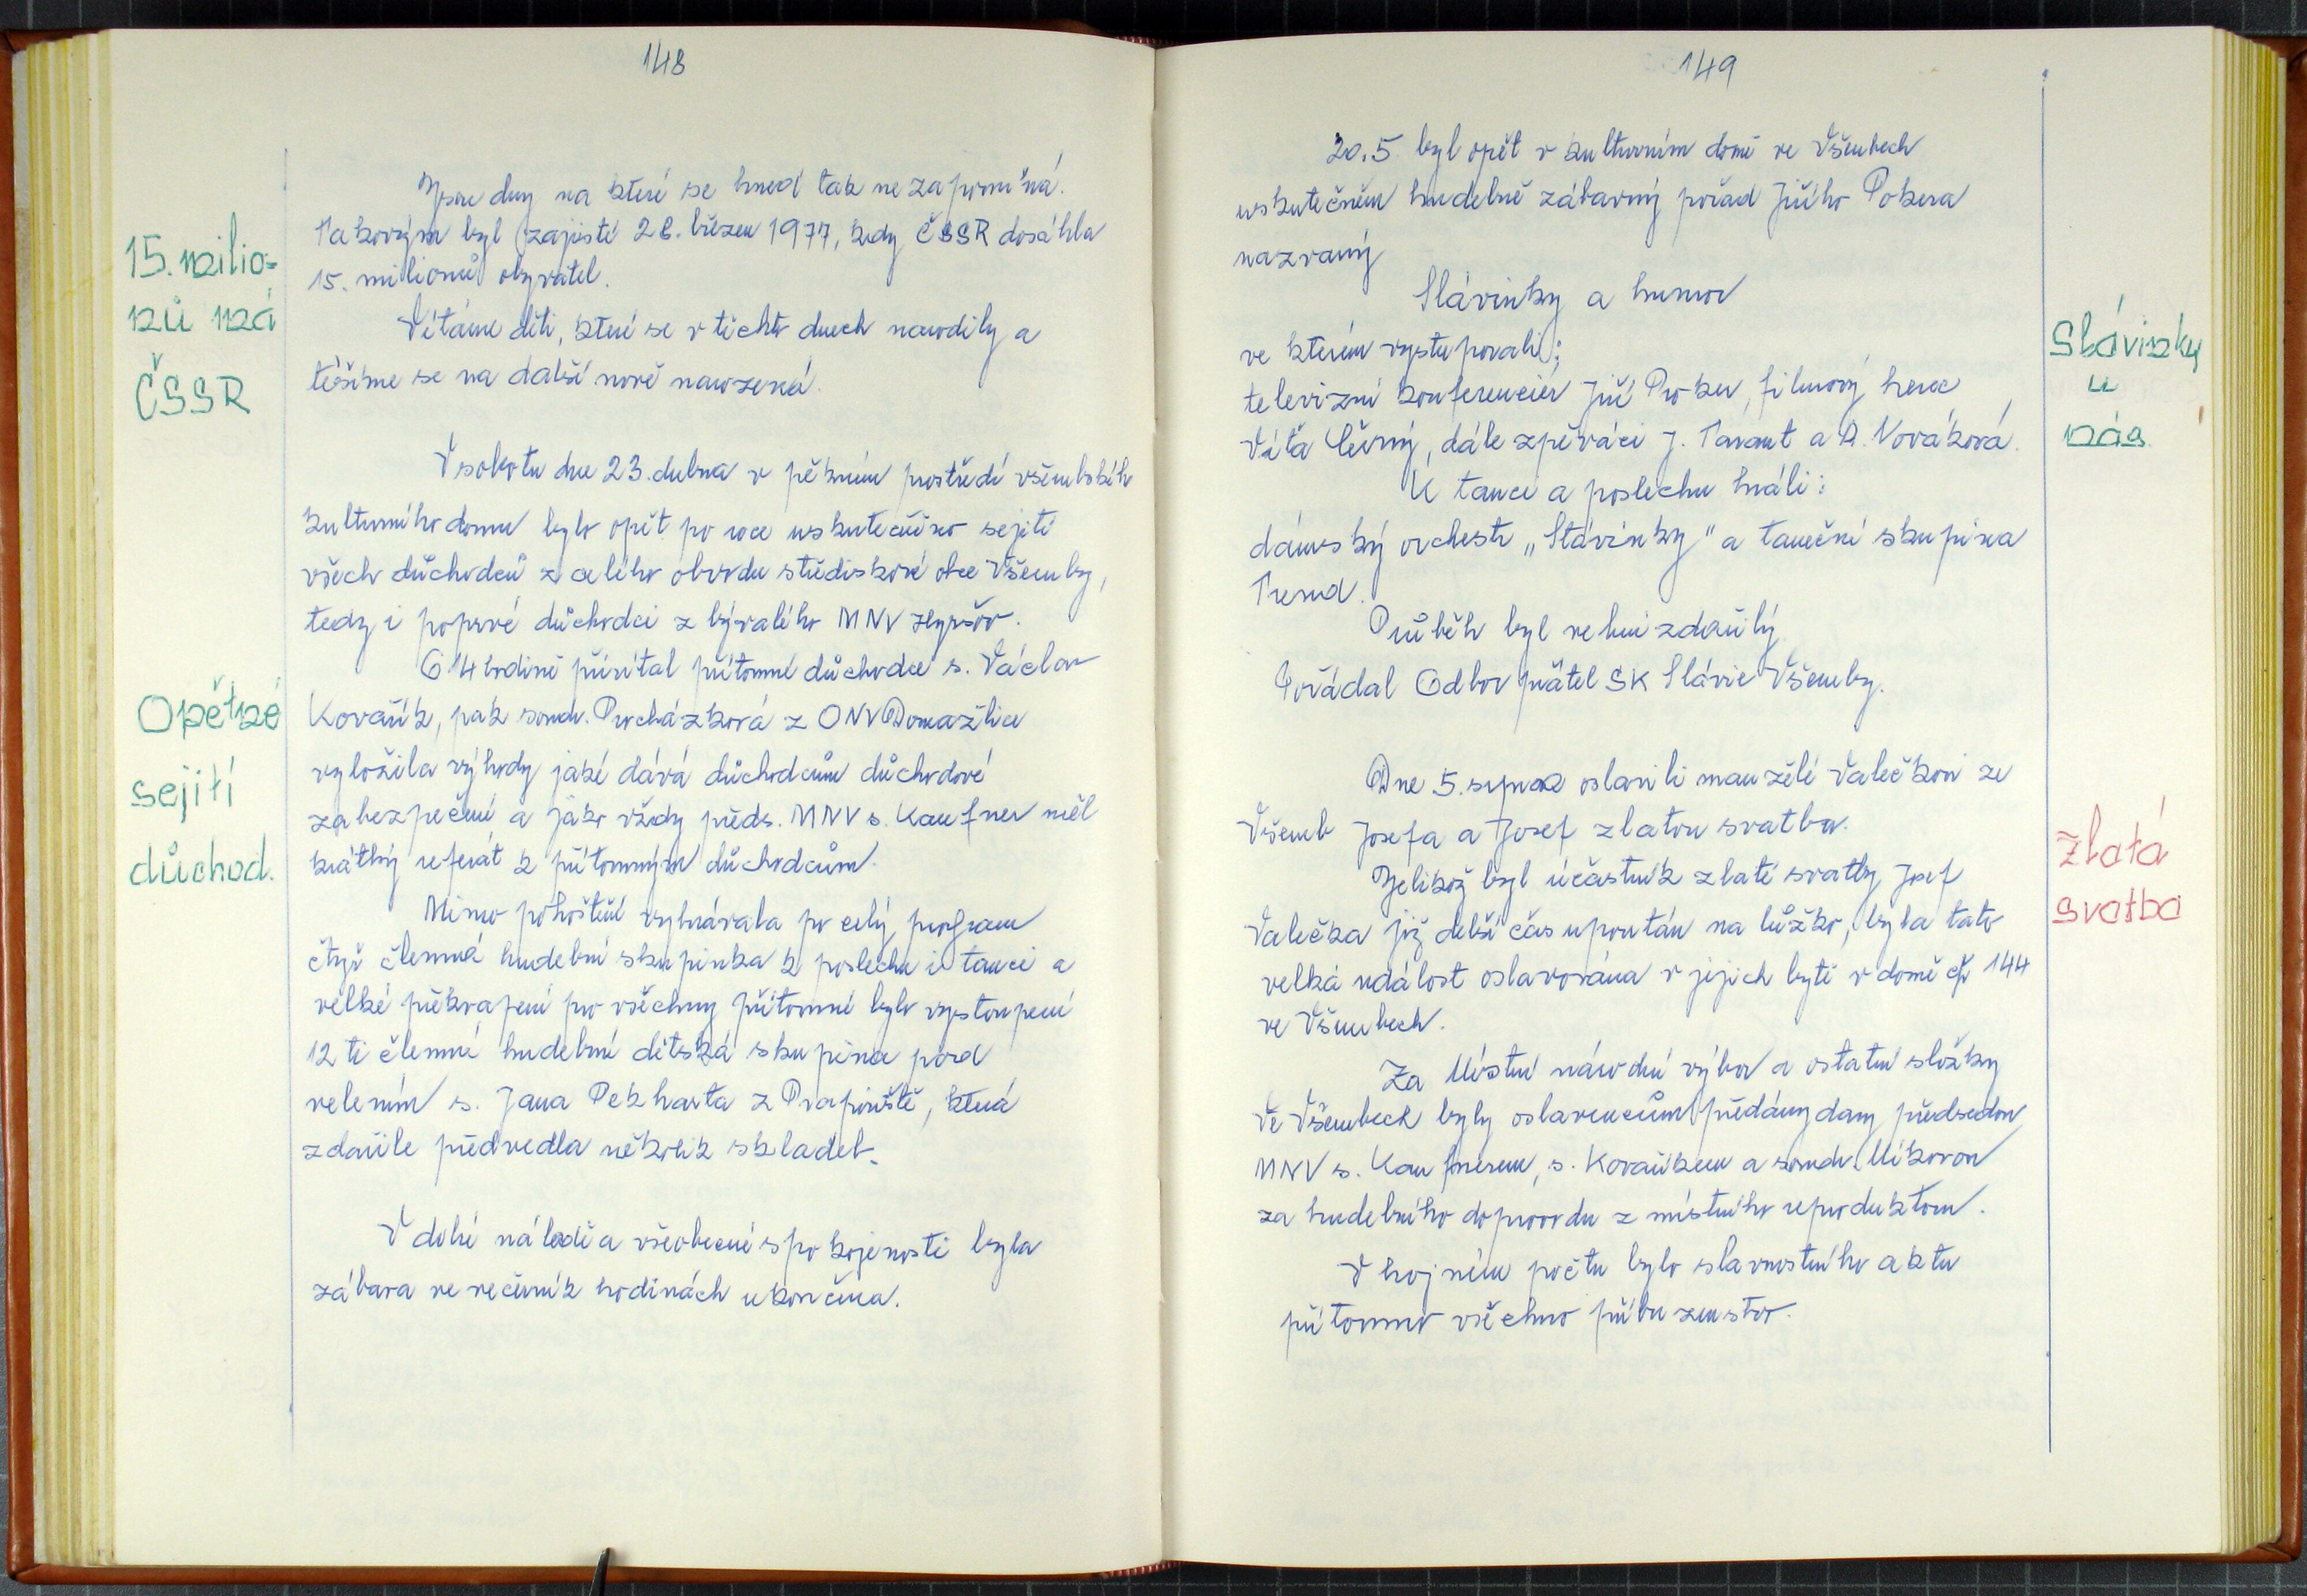 148
15. milio-
nů má
ČSSR
Opětné
sejití
důchod.
Jsou dny na které se hned tak nezapomíná.
Takovým byl zajisté 28. březen 1977, kdy ČSSR dosáhla
15. milionů obyvatel.
Vítáme děti, které se v těchto dnech narodily a
těšíme se na další nově narozená.
V sobotu dne 23. dubna v pěkném prostředí všerubských
kulturního domu bylo opět po roce uskutečněno sejití
všech důchodců z celého obvodu střediskové obce Všeruby,
tedy i poprvé důchodci z bývalého MNV Hyršov.
O 14 hodině přivítal přítomné důchodce s. Václav
Kovařík, pak soudr. Procházková z ONV Domažlice
vyložila výhody jaké dává důchodcům důchodové
zabezpečení a jako vždy předs. MNV s. Kaufner měl
krátký referát k přítomným důchodcům.
Mimo pohoštění vyhrávala po celý program
čtyř členná hudební skupinka k poslechu i tanci a
velké překvapení pro všechny přítomné bylo vystoupení
12 ti členné hudební dětská skupina pod
velením s. Jana Pekharta z Prapořiště, která
zdařile předvedla několik skladeb.
V dobré náladě a všeobecné spokojenosti byla
zábava ve večerních hodinách ukončena.
149
20.5. byl opět v kulturním domě ve Všerubech
uskutečněn hudebně zábavný pořad Jiřího Pokera
nazvaný
Slávinky a humor
ve kterém vystupovali:
televizní konferenciér Jiří Proker, filmový herec
Víťa Černý, dále zpěváci J. Tarant a A. Nováková.
K tanci a poslechu hráli:
dámský orchestr „Slávinky" a taneční skupina
Trend.
Průběh byl velmi zdařilý
Pořádal Odbor přátel SK Slávie Všeruby.
Dne 5. srpna oslavili manželé Valečkovi ze
Všerub Josefa a Josef zlatou svatbu.
Jelikož byl účastník zlaté svatby Josef
Valečka již delší čas upoután na lůžko, byla tato
velká událost oslavována v jejich bytě v domě čp 144
ve Všerubech.
Za Místní národní výbor a ostatní složky
ve Všerubech byly oslavencům předány dary předsedou
MNV s. Kaufnerem, s. Kovaříkem a soudr. Míkovou
za hudebního doprovodu z místního reproduktoru.
V hojném počtu bylo slavnostního aktu
přítomno všechno příbuzenstvo.
Slávinky
u
nás
Zlatá
svatba